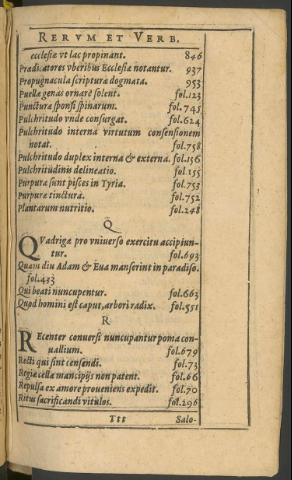 RERVM ET VERB.
ecclesiæ vt lac propinant. 846
Prædicatores vberibus Ecclesiæ notantur. 937
Propugnacula scripturæ dogmata. 953
Puellæ genas ornare solent. fol.123
Puncturæ sponsi spinarum. fol.745
Pulchritudo vnde consurgat. fol.624
Pulchritudo interna virtutum consensionem
notat. fol.758
Pulchritudo duplex interna & externa. fol.156
Pulchritudinis delineatio. fol.155
Purpuræ sunt pisces in Tyria. fol.753
Purpuræ tinctura. fol.752
Plantarum nutritio. fol.248
Q
QVadrigæ pro vniuerso exercitu accipiun-
tur. fol.693
Quam diu Adam & Eua manserint in paradiso.
fol.433
Qui beati nuncupentur. fol.663
Quod homini est caput, arbori radix. fol.551
R
REcenter conuersi nuncupantur poma con-
uallium. fol.679
Recti qui sint censendi. fol.73
Regiæ cellæ mancipijs non patent. fol.66
Repulsa ex amore proueniens expedit. fol.70
Ritus sacrificandi vitulos. fol.296
Ttt Salo-